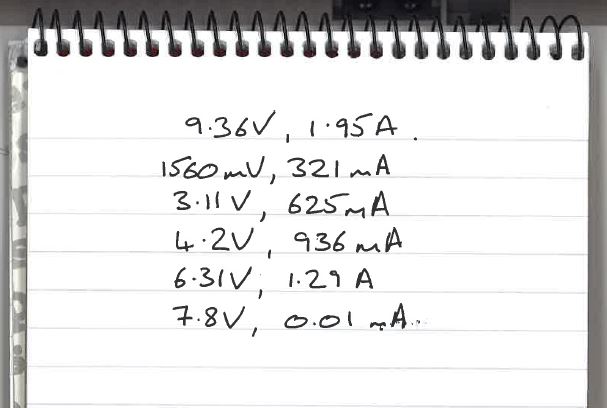 9.36V, 1.95A.
1560mV, 321mA
3.11V, 625mA
4.2V, 936mA
6.31V, 1.29A
7.8V, 0.01mA..